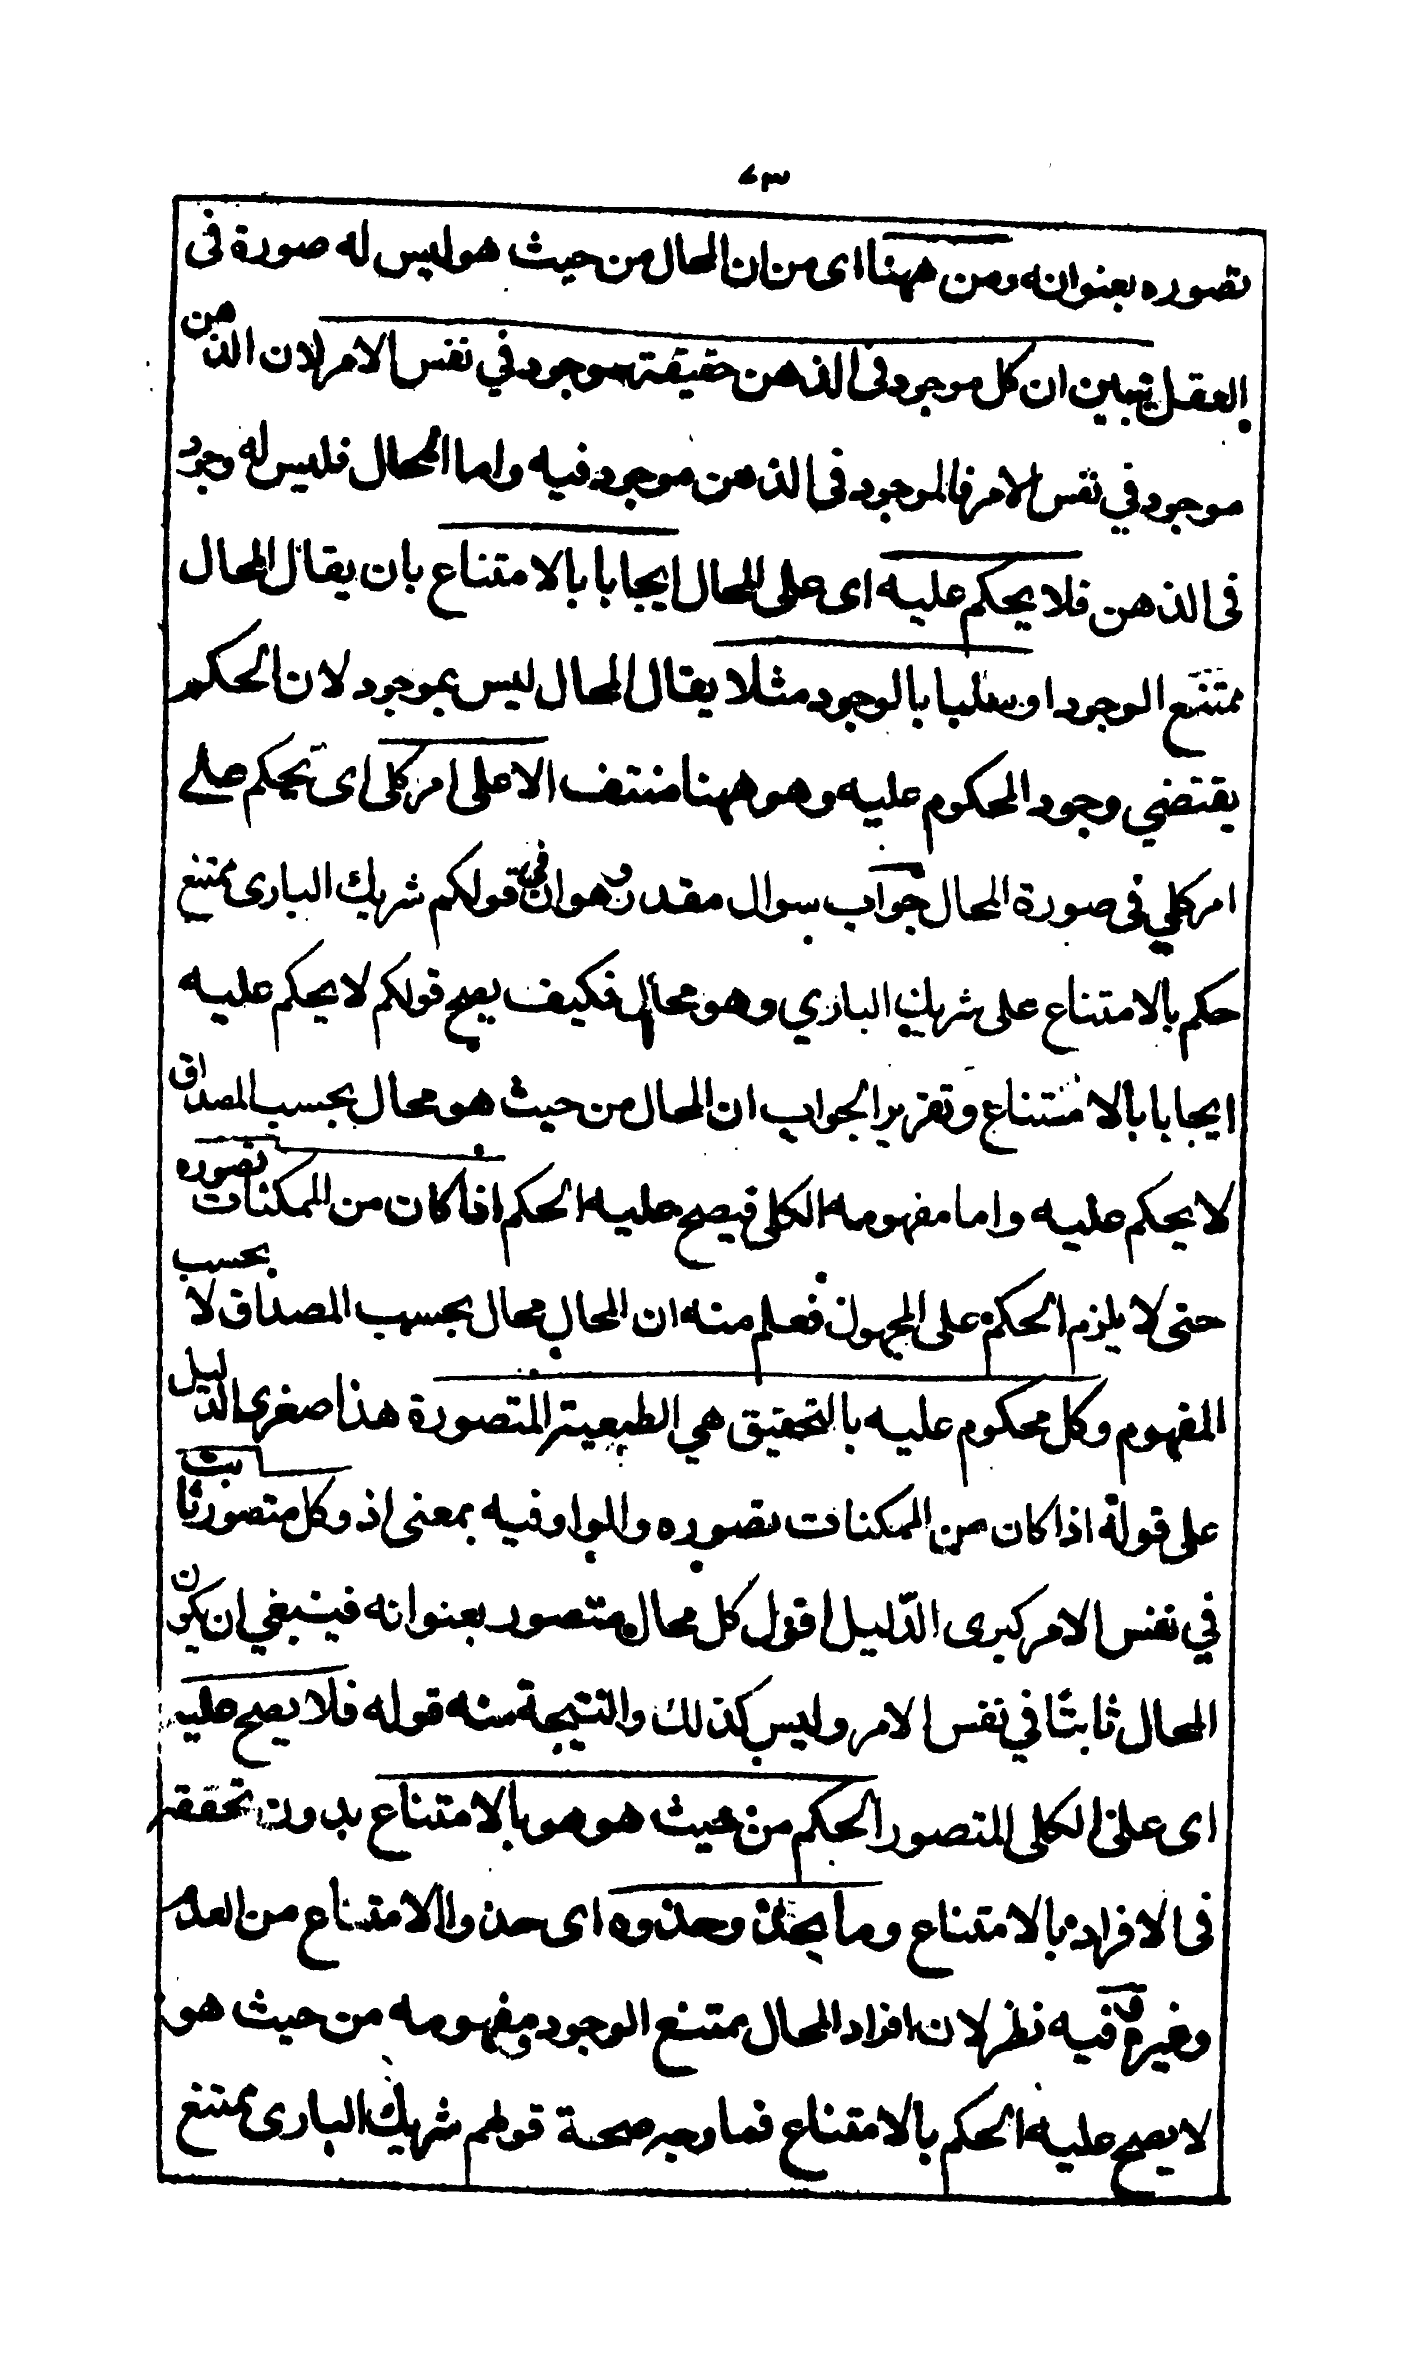 ٤٣
تصوره بعنوانه ومن ههنا اى من ان المحال من حيث هو ليس له صورة فى
العقل يتبين ان كل موجود فى الذهن حقيقة موجود في نفس الامر لان الذهن
موجود في نفس الامر فالموجود فى الذهن موجود فيه واما المحال فليس له وجود
فى الذهن فلا يحكم عليه اى على المحال ايجابا بالامتناع بان يقال المحال
ممتنع الوجود او سلبا بالوجود مثلا يقال المحال ليس بموجود لان الحكم
يقتضي وجود المحكوم عليه وهو ههنا منتف الا على امر كلى اى يحكم على
امر كلي فى صورة المحال جواب سوال مقدر وهو ان في قولكم شريك البارى ممتنع
حكم بالامتناع على شريك الباري وهو محال فكيف يصح قولكم لا يحكم عليه
ايجابا بالامتناع وتقرير الجواب ان المحال من حيث هو محال بحسب المصداق
لا يحكم عليه واما مفهومه الكلى فيصح عليه الحكم اذا كان من الممكنات تصوره
حتى لا يلزم الحكم على المجهول فعلم منه ان المحال محال بحسب المصداق لا بحسب
المفهوم وكل محكوم عليه بالتحقيق هي الطبيعة المتصورة هذا صغرى الدليل
على قوله اذا كان من الممكنات تصوره والواو فيه بمعنى اذ وكل متصور ثابت
في نفس الامر كبرى الدّليل اقول كل محال متصور بعنوانه فينبغي ان يكون
المحال ثابتًا في نفس الامر وليس كذلك والنتيجة منه قوله فلا يصح عليه
اى على الكلى المتصور الحكم من حيث هو هو بالامتناع بدون تحققه
فى الافراد بالامتناع وما يحذو حذوه اى حذو الامتناع من العدم
وغيره فيه نظر لان افراد المحال ممتنع الوجود ومفهومه من حيث هو
لا يصح عليه الحكم بالامتناع فما وجه صحة قولهم شريك البارى ممتنع